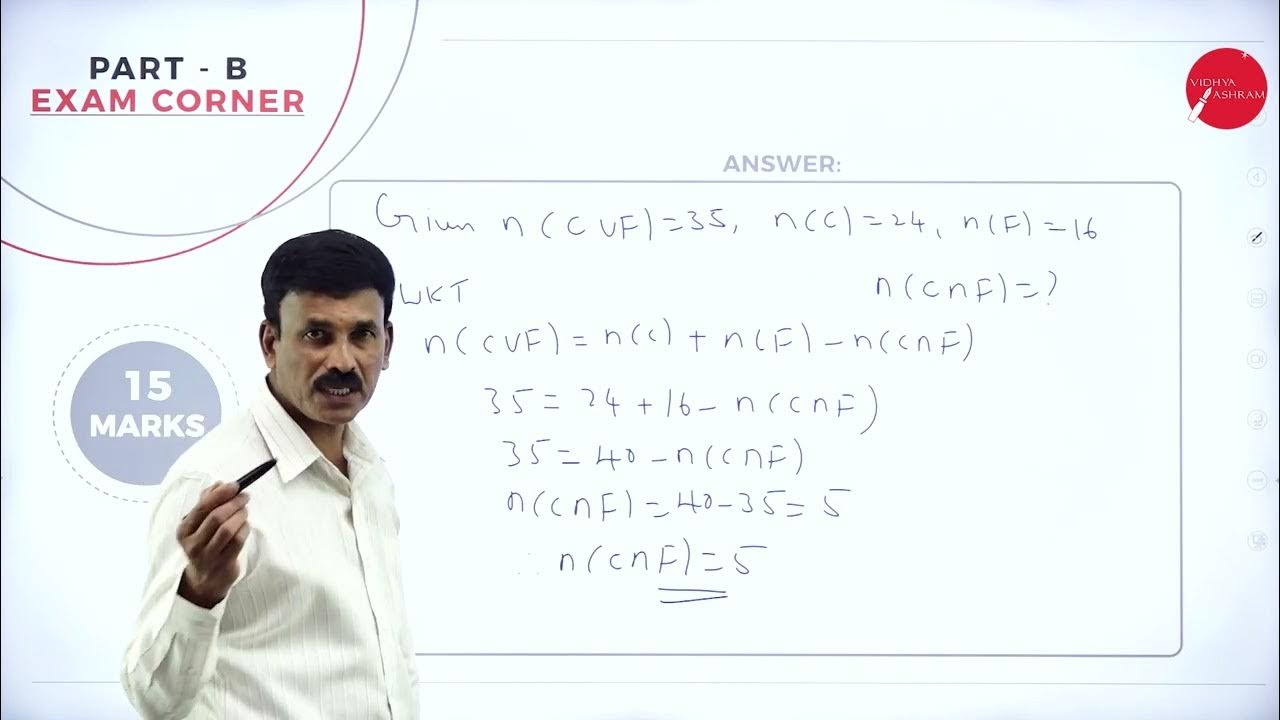 PART - B
EXAM CORNER
VIDHYA
ASHRAM
ANSWER:
Given n(C∪F)=35, n(C)=24, n(F)=16
WKT n(C∩F)=?
n(C∪F)=n(C)+n(F)-n(C∩F)
15
MARKS
35=24+16-n(C∩F)
35=40-n(C∩F)
n(C∩F)=40-35=5
∴ n(C∩F)=5